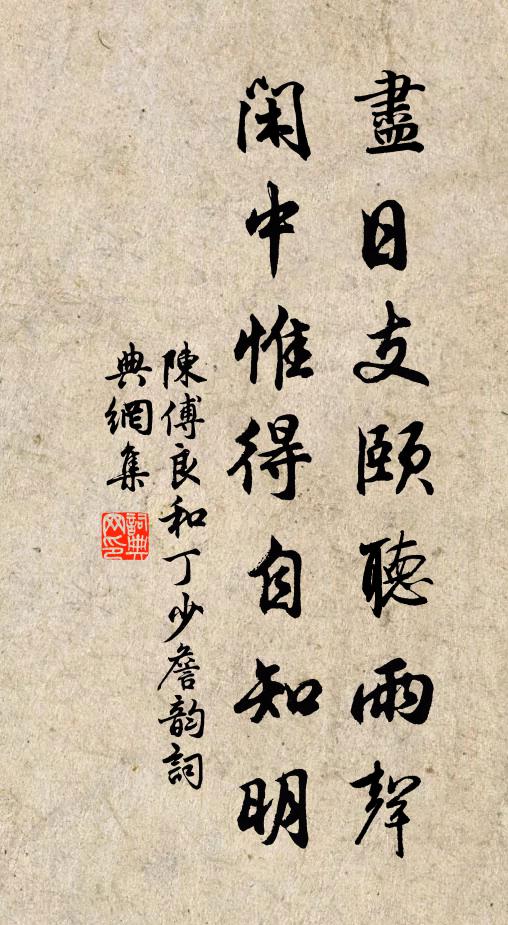 盡日支頤聽雨聲
閑中惟得自知明
陳傅良和丁少詹韵詞
典網集
詞典网印